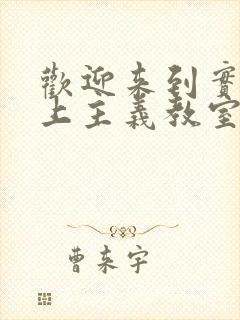 歡迎來到實
上主義教室
曹來宇